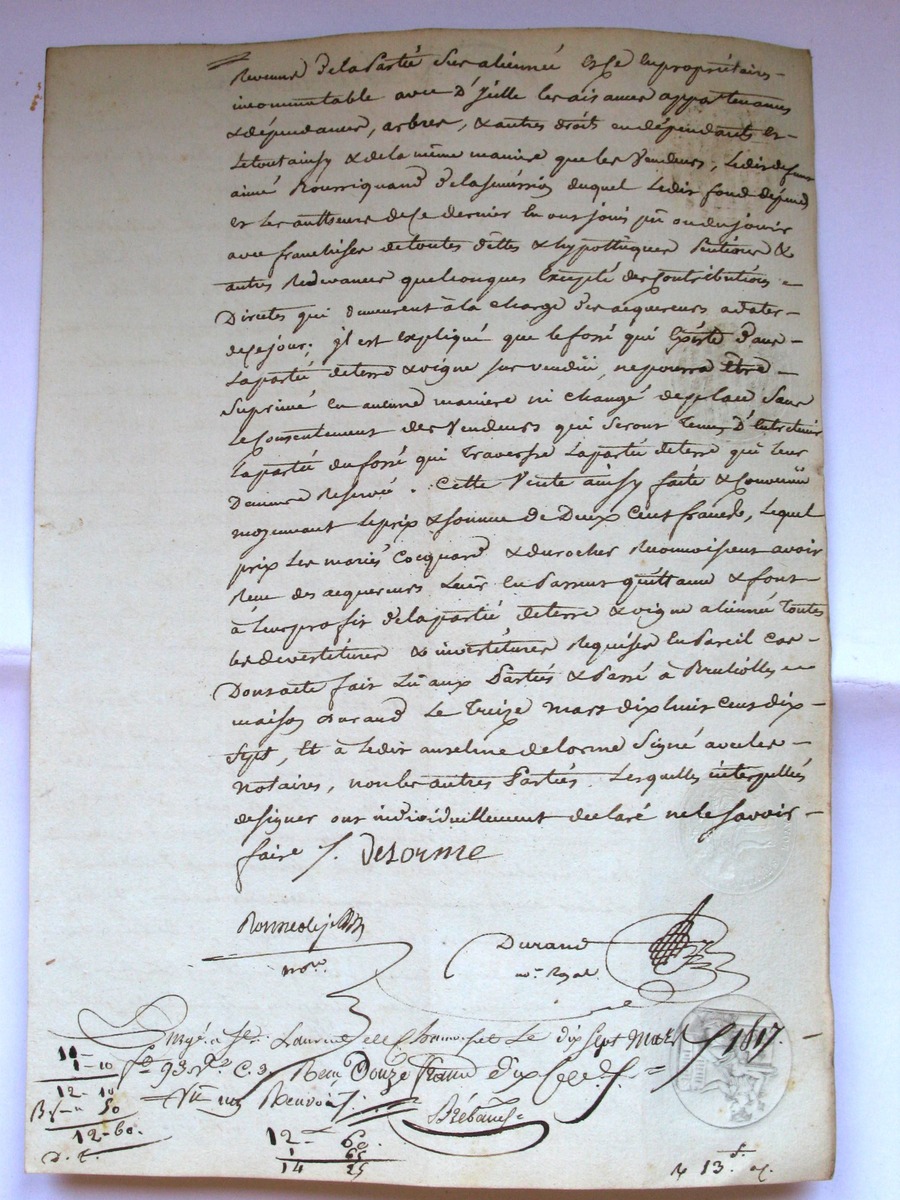 Revenue de la Partie sus aliennée et se en propriétaire
incommutable avec d'jcelle les aisances appartenances
& dépendances, arbres, & autres droits en dépendants et
le tout ainsy & de la même maniere que les Vendeurs, ledit defunt
aimé Bourriquand de la sucession duquel ledit fond dépend
et les autheurs de ce dernier en ont joüis pû ou du jouir
avec franchises de toutes dettes & hypothèques Pentions &
autres Redevances quelconques Excepté des Contributions
Directes qui demeurent à la charge des acquereurs a dater
de ce jour; jl est Expliqué que le fossé qui Existe dans
la partie de terre & vigne sus vendüe, ne pourra être
Suprimé en aucune maniere ni changé de place Sans
le Consentement des Vendeurs qui Seront Tenus D'Entretenir
la partie du fossé qui Traverse la partie de terre qui leur
Demeure Reservée. Cette Vente ainsy faite & Convenüe
moyennant le prix & somme de Deux Cent francs, lequel
prix les mariés Cocquard & durocher Reconnoissent avoir
Reçu des acquereurs leur en Passent quittance & font
à leur profit de la partie de terre & vigne aliennée Toutes
les devestitures & investitures Requises En Pareil cas
Dont acte fait Lû aux Parties & Passé à Brulliolles en
maison Durand Le Treize Mars dix huit Cent dix
Sept, Et à ledit anselme delorme Signé avec les
notaires, non les autres Parties. Lesquelles interpellés
de signer ont individuellement declaré ne le savoir
faire /. delorme
nore.
Durand
nre. Royal
Enrgé. a St. Laurent de Chamousset Le dix Sept Mars 1817.
fo 93 Ro C. 3. Reçu Douze francs dix
11 –
1 – 10
12 – 10
50
12 – 60.
12 – 60.
1 65
14 25
13